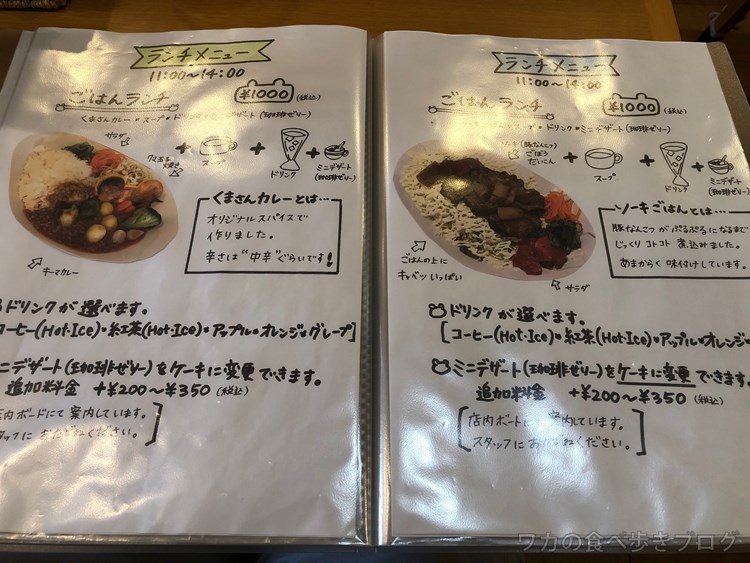 ランチメニュー
11:00~14:00
ごはんランチ
¥1000 (税込)
くまさんカレー・スープ・ドリンク・ミニデザート(珈琲ゼリー)
サラダ
+
スープ
+
ドリンク
+
ミニデザート
(珈琲ゼリー)
キーマカレー
くまさんカレーとは…
オリジナルスパイスで
作りました。
辛さは"中辛"ぐらいです!
ドリンクが選べます。
コーヒー(Hot・Ice)・紅茶(Hot・Ice)・アップル・オレンジ・グレープ]
ニデザート(珈琲ゼリー)をケーキに変更できます。
追加料金 +¥200~¥350(税込)
店内ボードにて案内しています。
タッフにおたずねください。
ランチメニュー
11:00~14:00
ごはんランチ
¥1000 (税込)
スープ・ドリンク・ミニデザート(珈琲ゼリー)
(豚なんこつ)
ごぼう
だいこん
+
スープ
+
ドリンク
+
ミニデザート
(珈琲ゼリー)
ごはんの上に
キャベツいっぱい
サラダ
ソーキごはんとは…
豚なんこつがぷるぷるになるまで
じっくりコトコト煮込せました。
あまからく味付けしています。
ドリンクが選べます。
[コーヒー(Hot・Ice)・紅茶(Hot・Ice)・アップル・オレンジ
ミニデザート(珈琲ゼリー)をケーキに変更できます。
追加料金 +¥200~¥350(税込)
店内ボードにて案内しています。
スタッフにおたずねください。
ワカの食べ歩きブログ